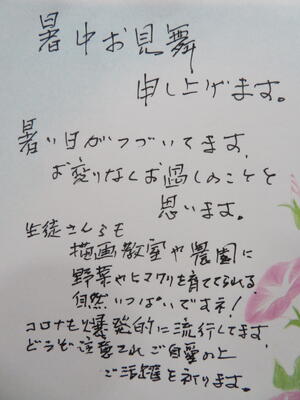 暑中お見舞
申し上げます。
暑い日がつづいてます、
お変りなくお過しのことと
思います。
生徒さんらも
描画教室や農園に
野菜やヒマワリを育てられる
自然いっぱいですネ!
コロナも爆発的に流行してます、
どうぞ注意されご自愛の上
ご活躍を祈ります。